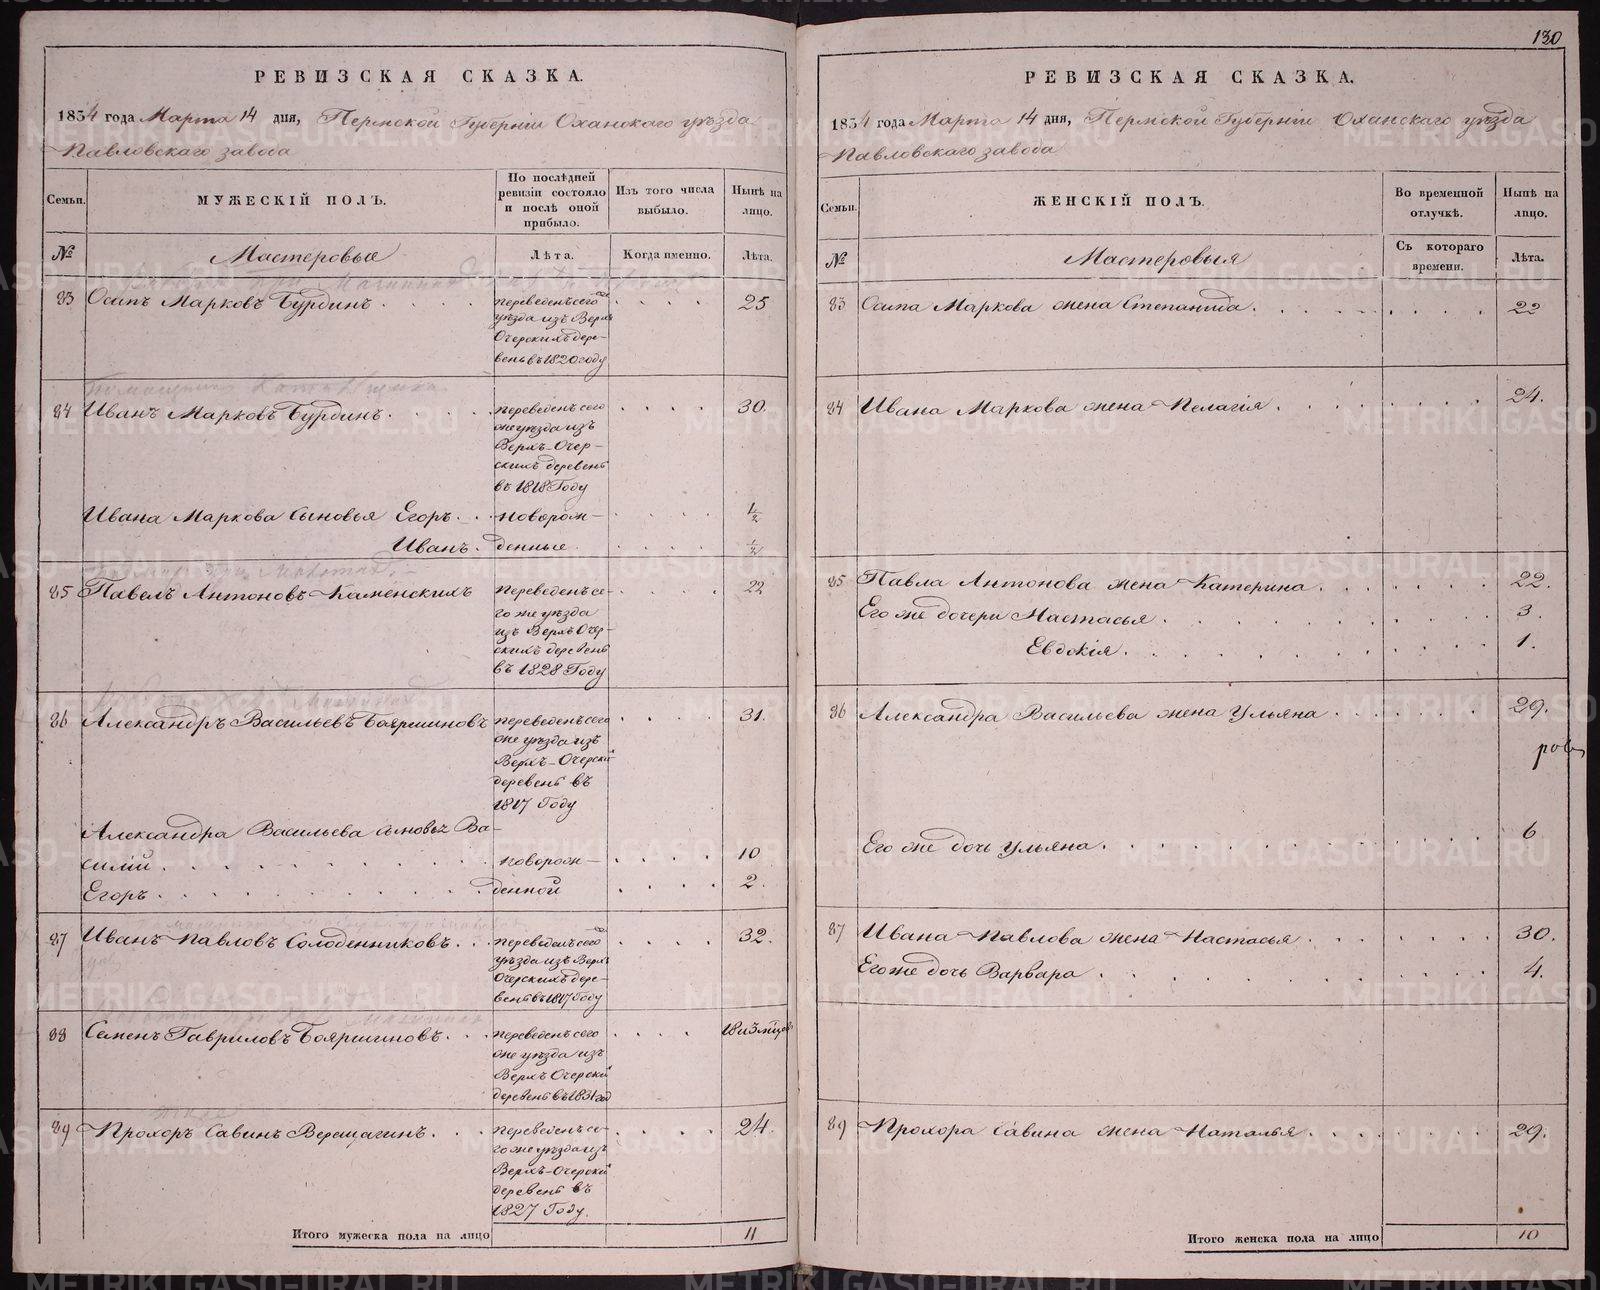 РЕВИЗСКАЯ СКАЗКА.
1834 года Марта 14 дня, Пермской Губерніи Оханскаго уѣзда
Павловскаго завода
Семьи.
МУЖЕСКІЙ ПОЛЪ.
По послѣдней ревизіи состояло и послѣ оной прибыло.
Изъ того числа выбыло.
Нынѣ на лицо.
№
Мастеровые
Лѣта.
Когда именно.
Лѣта.
83 Осипъ Марковъ Бурдинъ. переведенъ сего 25
уѣзда изъ Верхъ
Очерскихъ дере-
вень въ 1820 году
84 Иванъ Марковъ Бурдинъ. переведенъ сего 30.
же уѣзда изъ
Верхъ-Очер-
скихъ деревень
въ 1818 Году
Ивана Маркова сыновья Егоръ. новорож- 1/2
Иванъ. денные. 1/2
85 Павелъ Антоновъ Каменскихъ переведенъ се- 22
го же уѣзда
изъ Верхъ Очер-
скихъ деревень
въ 1828 Году
86 Александръ Васильевъ Бояршиновъ переведенъ сего 31.
же уѣзда изъ
Верхъ-Очерски
деревень въ
1817 Году
Александра Васильева сыновья Ва-
силій. новорож- 10
Егоръ. денной 2.
87 Иванъ Павловъ Солоденниковъ. переведенъ сего 32.
уѣзда изъ Верхъ
Очерскихъ дере-
вень въ 1817 Году
88 Семенъ Гавриловъ Бояршиновъ. переведенъ сего
же уѣзда изъ
Верхъ Очерски
деревень въ 1831 год
89 Прохоръ Савинъ Верещагинъ. переведенъ се- 24.
го же уѣзда изъ
Верхъ-Очерски
деревень въ
1827 Году.
Итого мужеска пола на лицо 11
130
РЕВИЗСКАЯ СКАЗКА.
1834 года Марта 14 дня, Пермской Губерніи Оханскаго уѣзда
Павловскаго завода
Семьи.
ЖЕНСКІЙ ПОЛЪ.
Во временной отлучкѣ.
Нынѣ на лицо.
№
Мастеровыя
Съ котораго времени.
Лѣта.
83 Осипа Маркова жена Степанида. 22
84 Ивана Маркова жена Пелагія. 24.
85 Павла Антонова жена Катерина. 22.
Его же дочери Настасья. 3.
Евдокія. 1.
86 Александра Васильева жена Ульяна. 29.
Его же дочь Ульяна. 6
87 Ивана Павлова жена Настасья. 30.
Его же дочь Варвара. 4.
89 Прохора Савина жена Наталья. 29.
Итого женска пола на лицо 10
METRIKI.GASO-URAL.RU